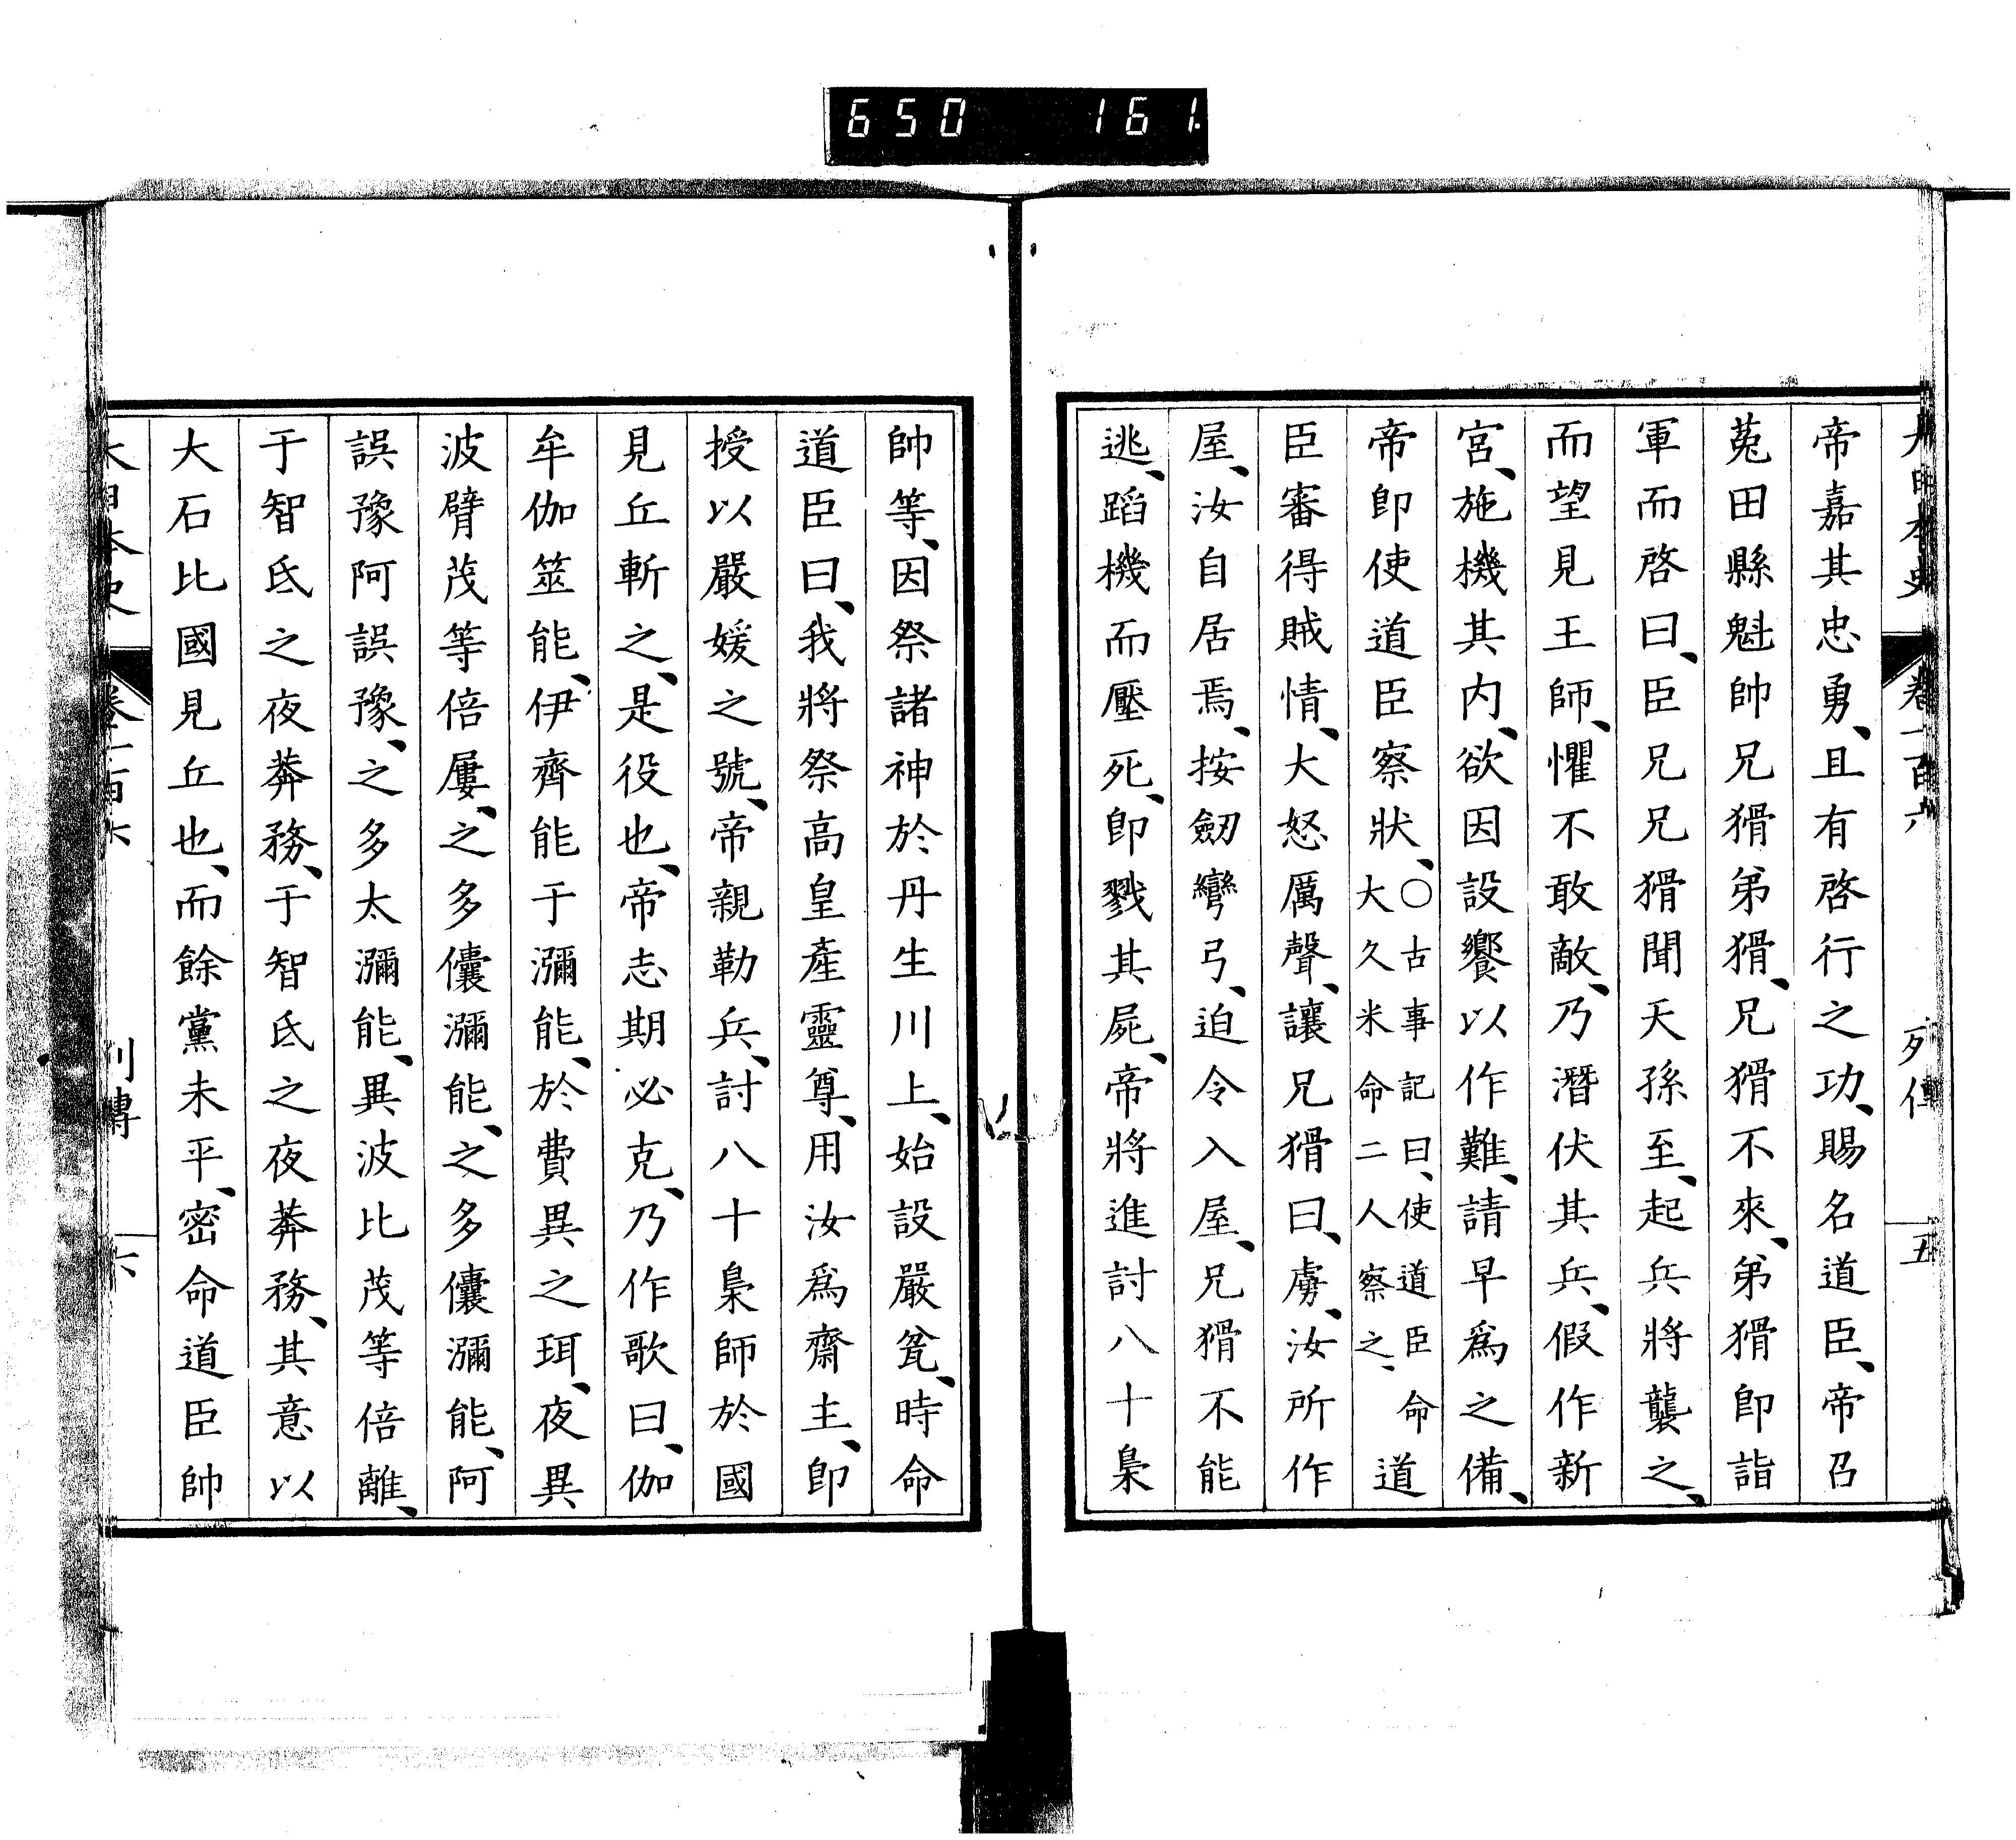 650 161
大日本史 卷一百六 列傳 五
帝嘉其忠勇、且有啓行之功、賜名道臣、帝召
菟田縣魁帥兄猾弟猾、兄猾不來、弟猾卽詣
軍而啓曰、臣兄兄猾聞天孫至、起兵將襲之、
而望見王師、懼不敢敵、乃潛伏其兵、假作新
宮、施機其内、欲因設饗以作難、請早爲之備、
帝卽使道臣察狀、○古事記曰、使道臣命大久米命二人察之、道
臣審得賊情、大怒厲聲、讓兄猾曰、虜、汝所作
屋、汝自居焉、按劒彎弓、迫令入屋、兄猾不能
逃、蹈機而壓死、卽戮其屍、帝將進討八十梟
帥等、因祭諸神於丹生川上、始設嚴瓮、時命
道臣曰、我將祭高皇產靈尊、用汝爲齋主、卽
授以嚴媛之號、帝親勒兵、討八十梟師於國
見丘斬之、是役也、帝志期必克、乃作歌曰、伽
牟伽筮能、伊齊能于瀰能、於費異之珥、夜異
波臂茂等倍屢、之多儾瀰能、之多儾瀰能、阿
誤豫阿誤豫、之多太瀰能、異波比茂等倍離、
于智氐之夜莽務、于智氐之夜莽務、其意以
大石比國見丘也、而餘黨未平、密命道臣帥
大日本史 卷一百六 列傳 六